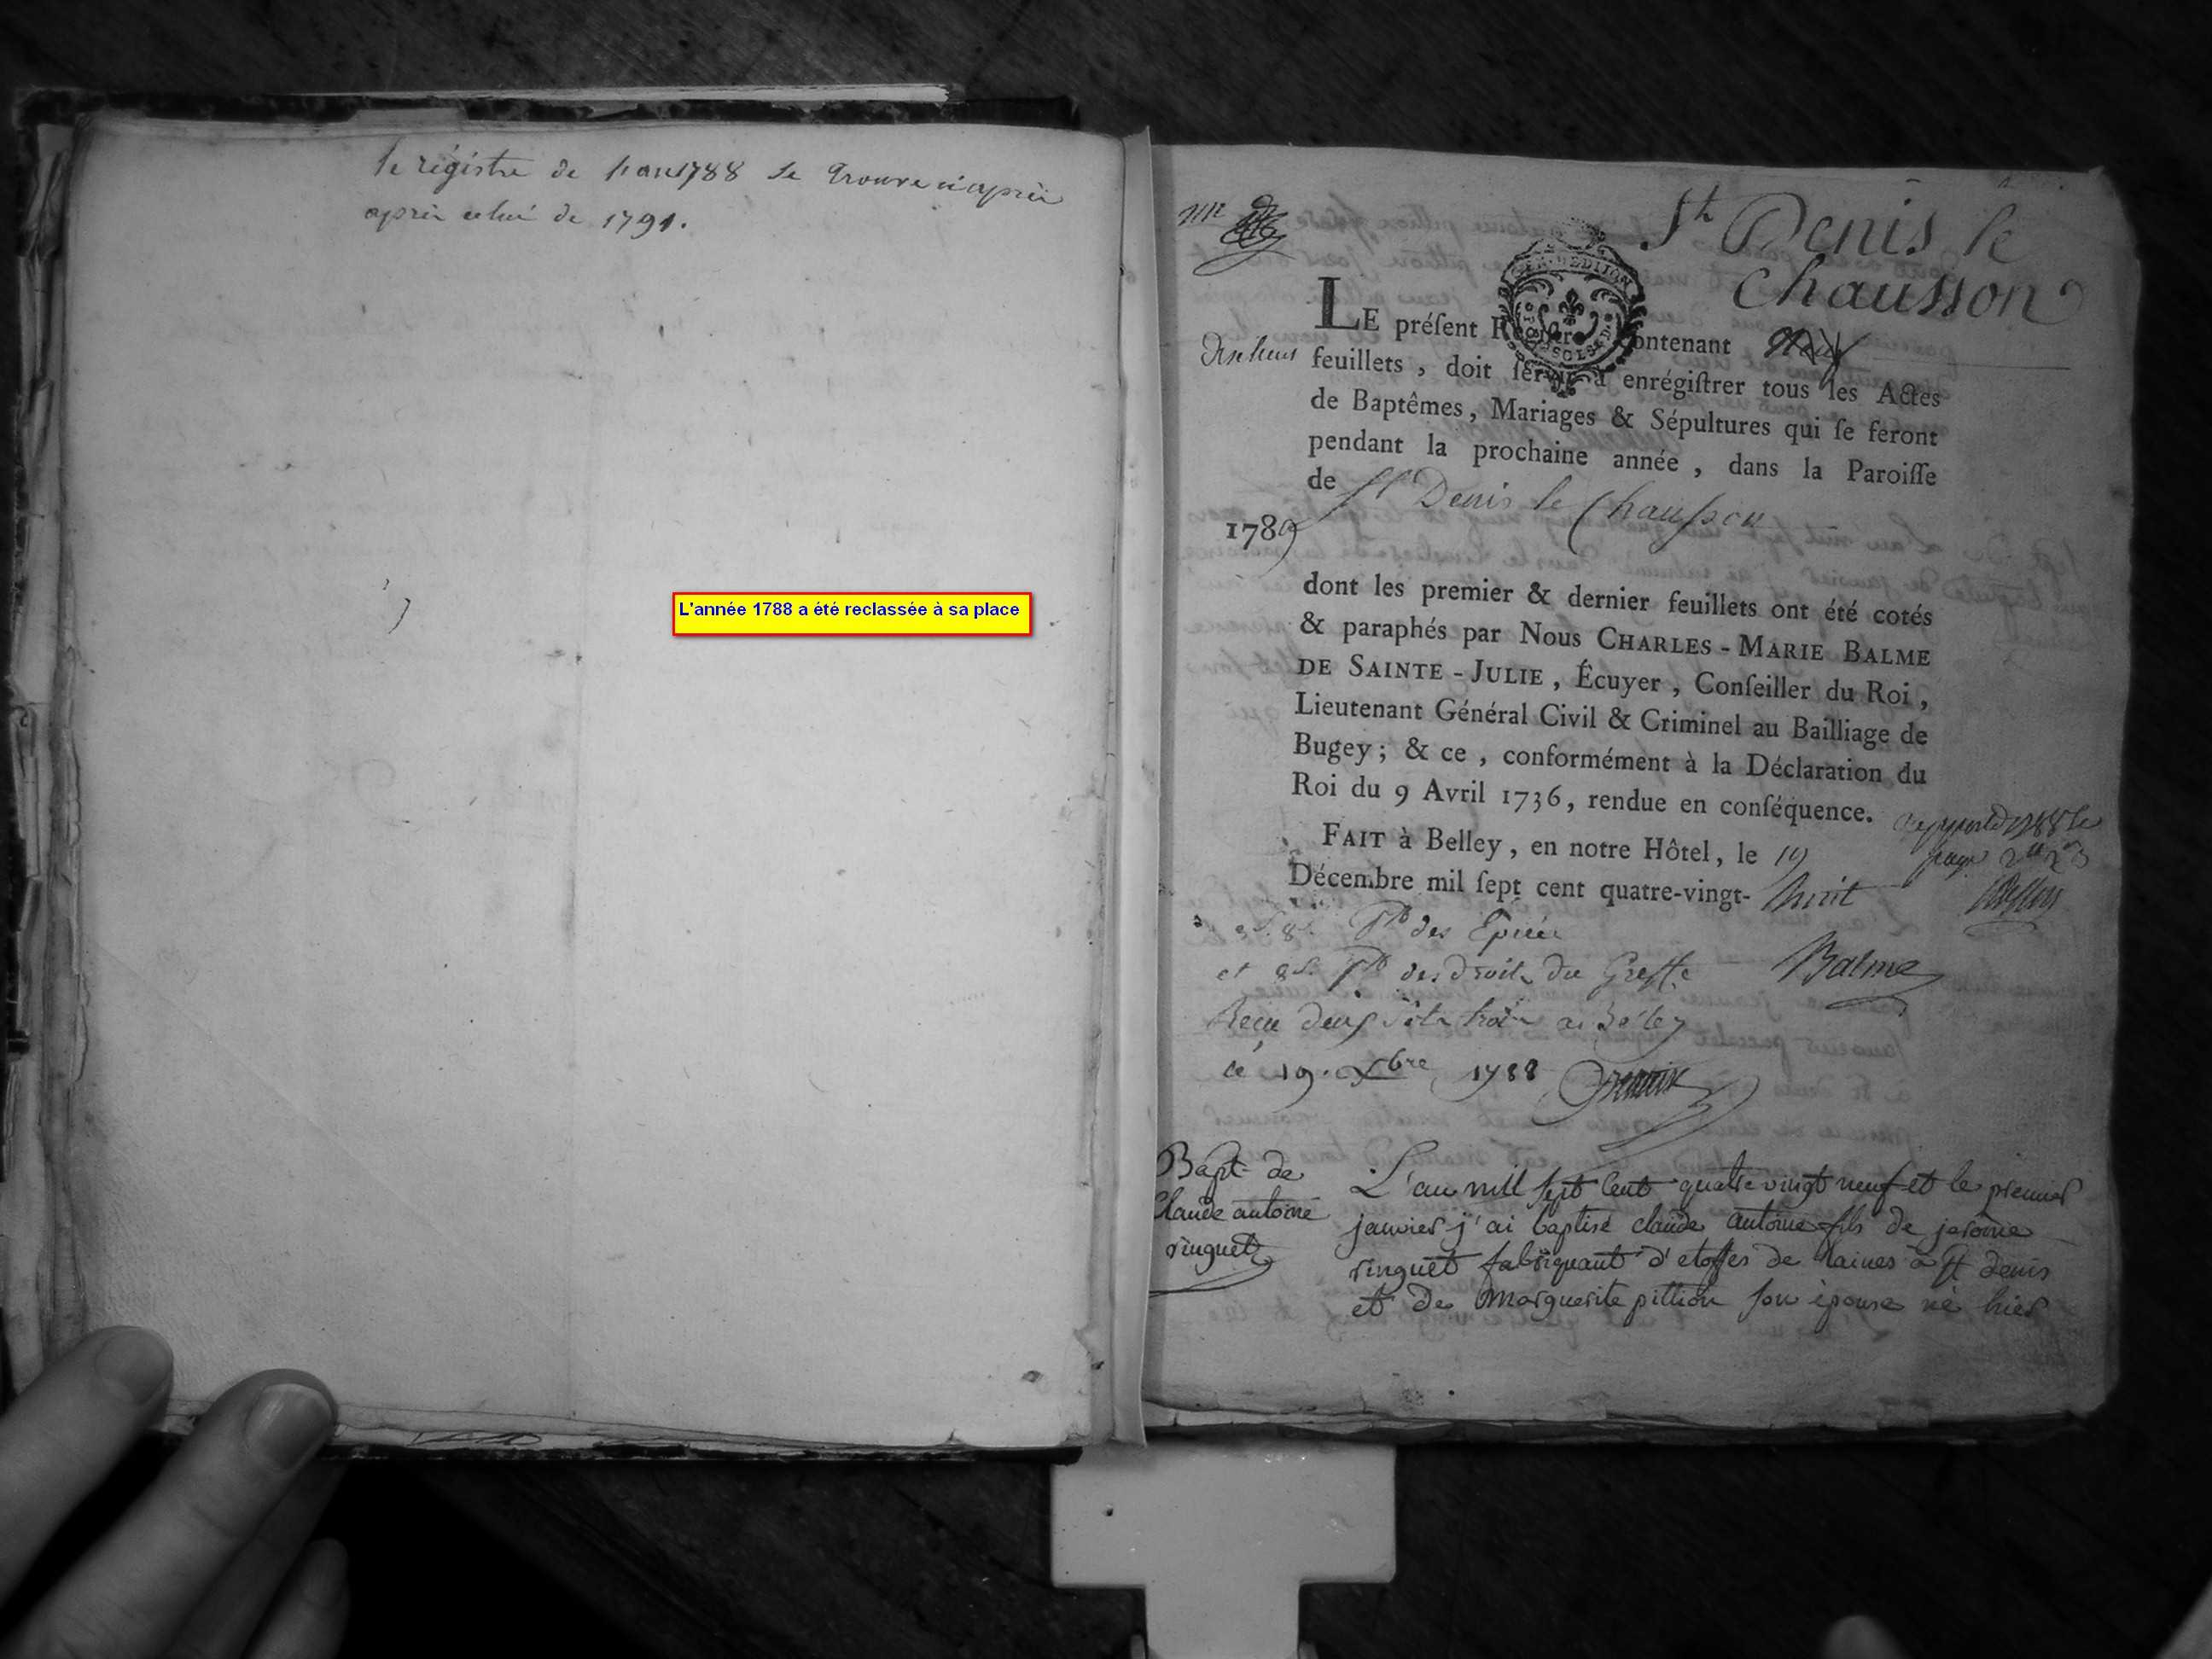 le régistre de l'an 1788 se trouve ci après
après celui de 1791.
L'année 1788 a été reclassée à sa place
St Denis le
chausson
LE préſent Regiſtre contenant
feuillets, doit ſervir à enrégiſtrer tous les Actes
de Baptêmes, Mariages & Sépultures qui ſe feront
pendant la prochaine année, dans la Paroiſſe
de St Denis le Chausson
1789
dont les premier & dernier feuillets ont été cotés
& paraphés par Nous CHARLES-MARIE BALME
DE SAINTE-JULIE, Écuyer, Conſeiller du Roi,
Lieutenant Général Civil & Criminel au Bailliage de
Bugey; & ce, conformément à la Déclaration du
Roi du 9 Avril 1736, rendue en conſéquence.
FAIT à Belley, en notre Hôtel, le 19
Décembre mil ſept cent quatre-vingt-huit
des Epices
et 8s. des droits du Greffe
Balme
Recu deux sols trois a Belley
ce 19. Xbre 1788
Bapt de
Claude antoine
ringuet
L'an mill sept cent quatre vingt neuf et le premier
janvier j'ai baptisé claude antoine fils de jerome
ringuet fabriquant d'etoffes de laines a st denis
et de marguerite pittion son épouse né hier